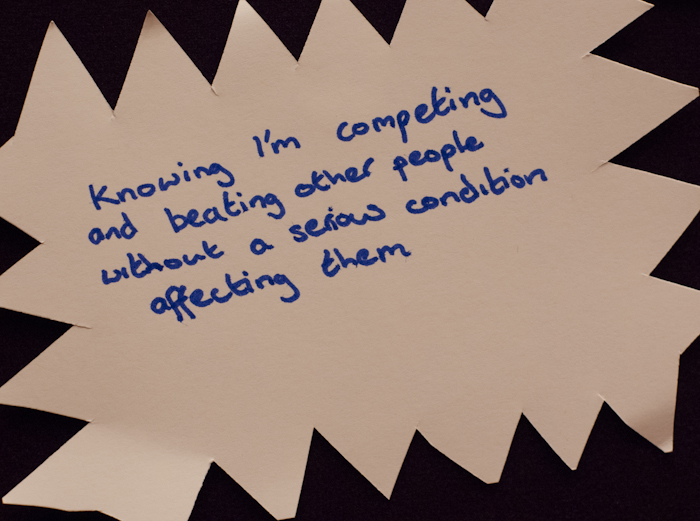 Knowing I'm competing
and beating other people
without a serious condition
affecting them